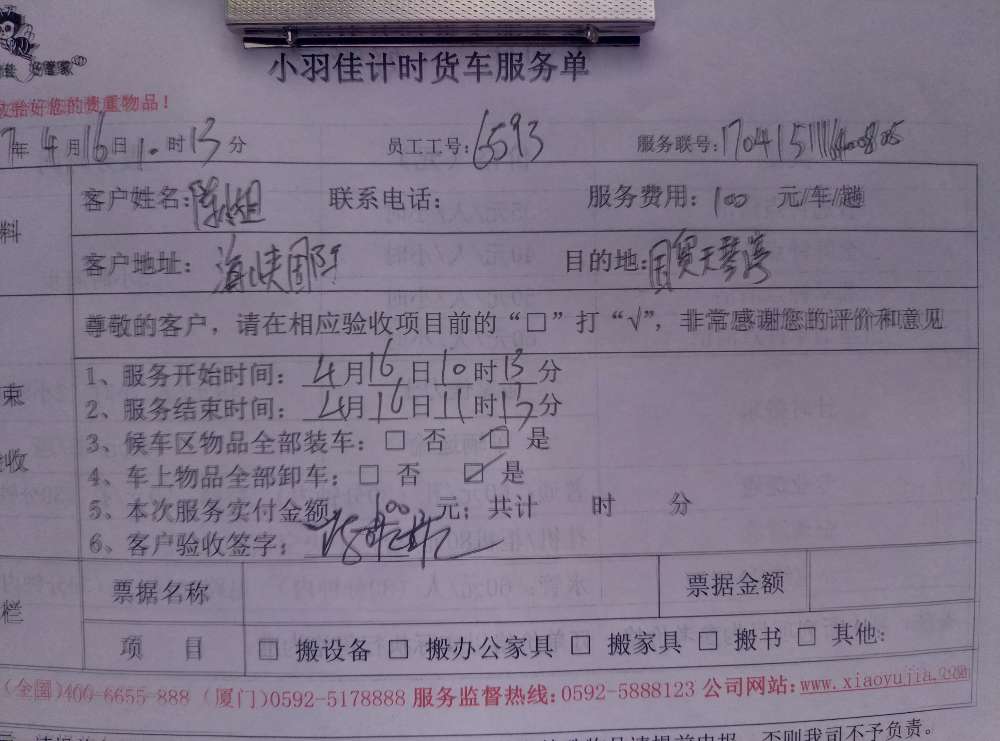 小羽佳计时货车服务单
好您的贵重物品！
7年4月16日10时13分 员工工号：6593 服务联号：
料
客户姓名：陈小姐 联系电话： 服务费用：100 元/车/趟
客户地址：海峡国际 目的地：国贸天琴湾
尊敬的客户，请在相应验收项目前的“□”打“√”，非常感谢您的评价和意见
束
1、服务开始时间：4月16日10时13分
2、服务结束时间：4月16日11时13分
3、候车区物品全部装车：□ 否 ☑ 是
收
4、车上物品全部卸车：□ 否 ☑ 是
5、本次服务实付金额：100元；共计 时 分
6、客户验收签字：
栏
票据名称 票据金额
项 目 □ 搬设备 □ 搬办公家具 □ 搬家具 □ 搬书 □ 其他：
(全国)400-6655-888 (厦门)0592-5178888 服务监督热线：0592-5888123 公司网站：www.xiaoyujia.com
请提前申报，否则我司不予负责。